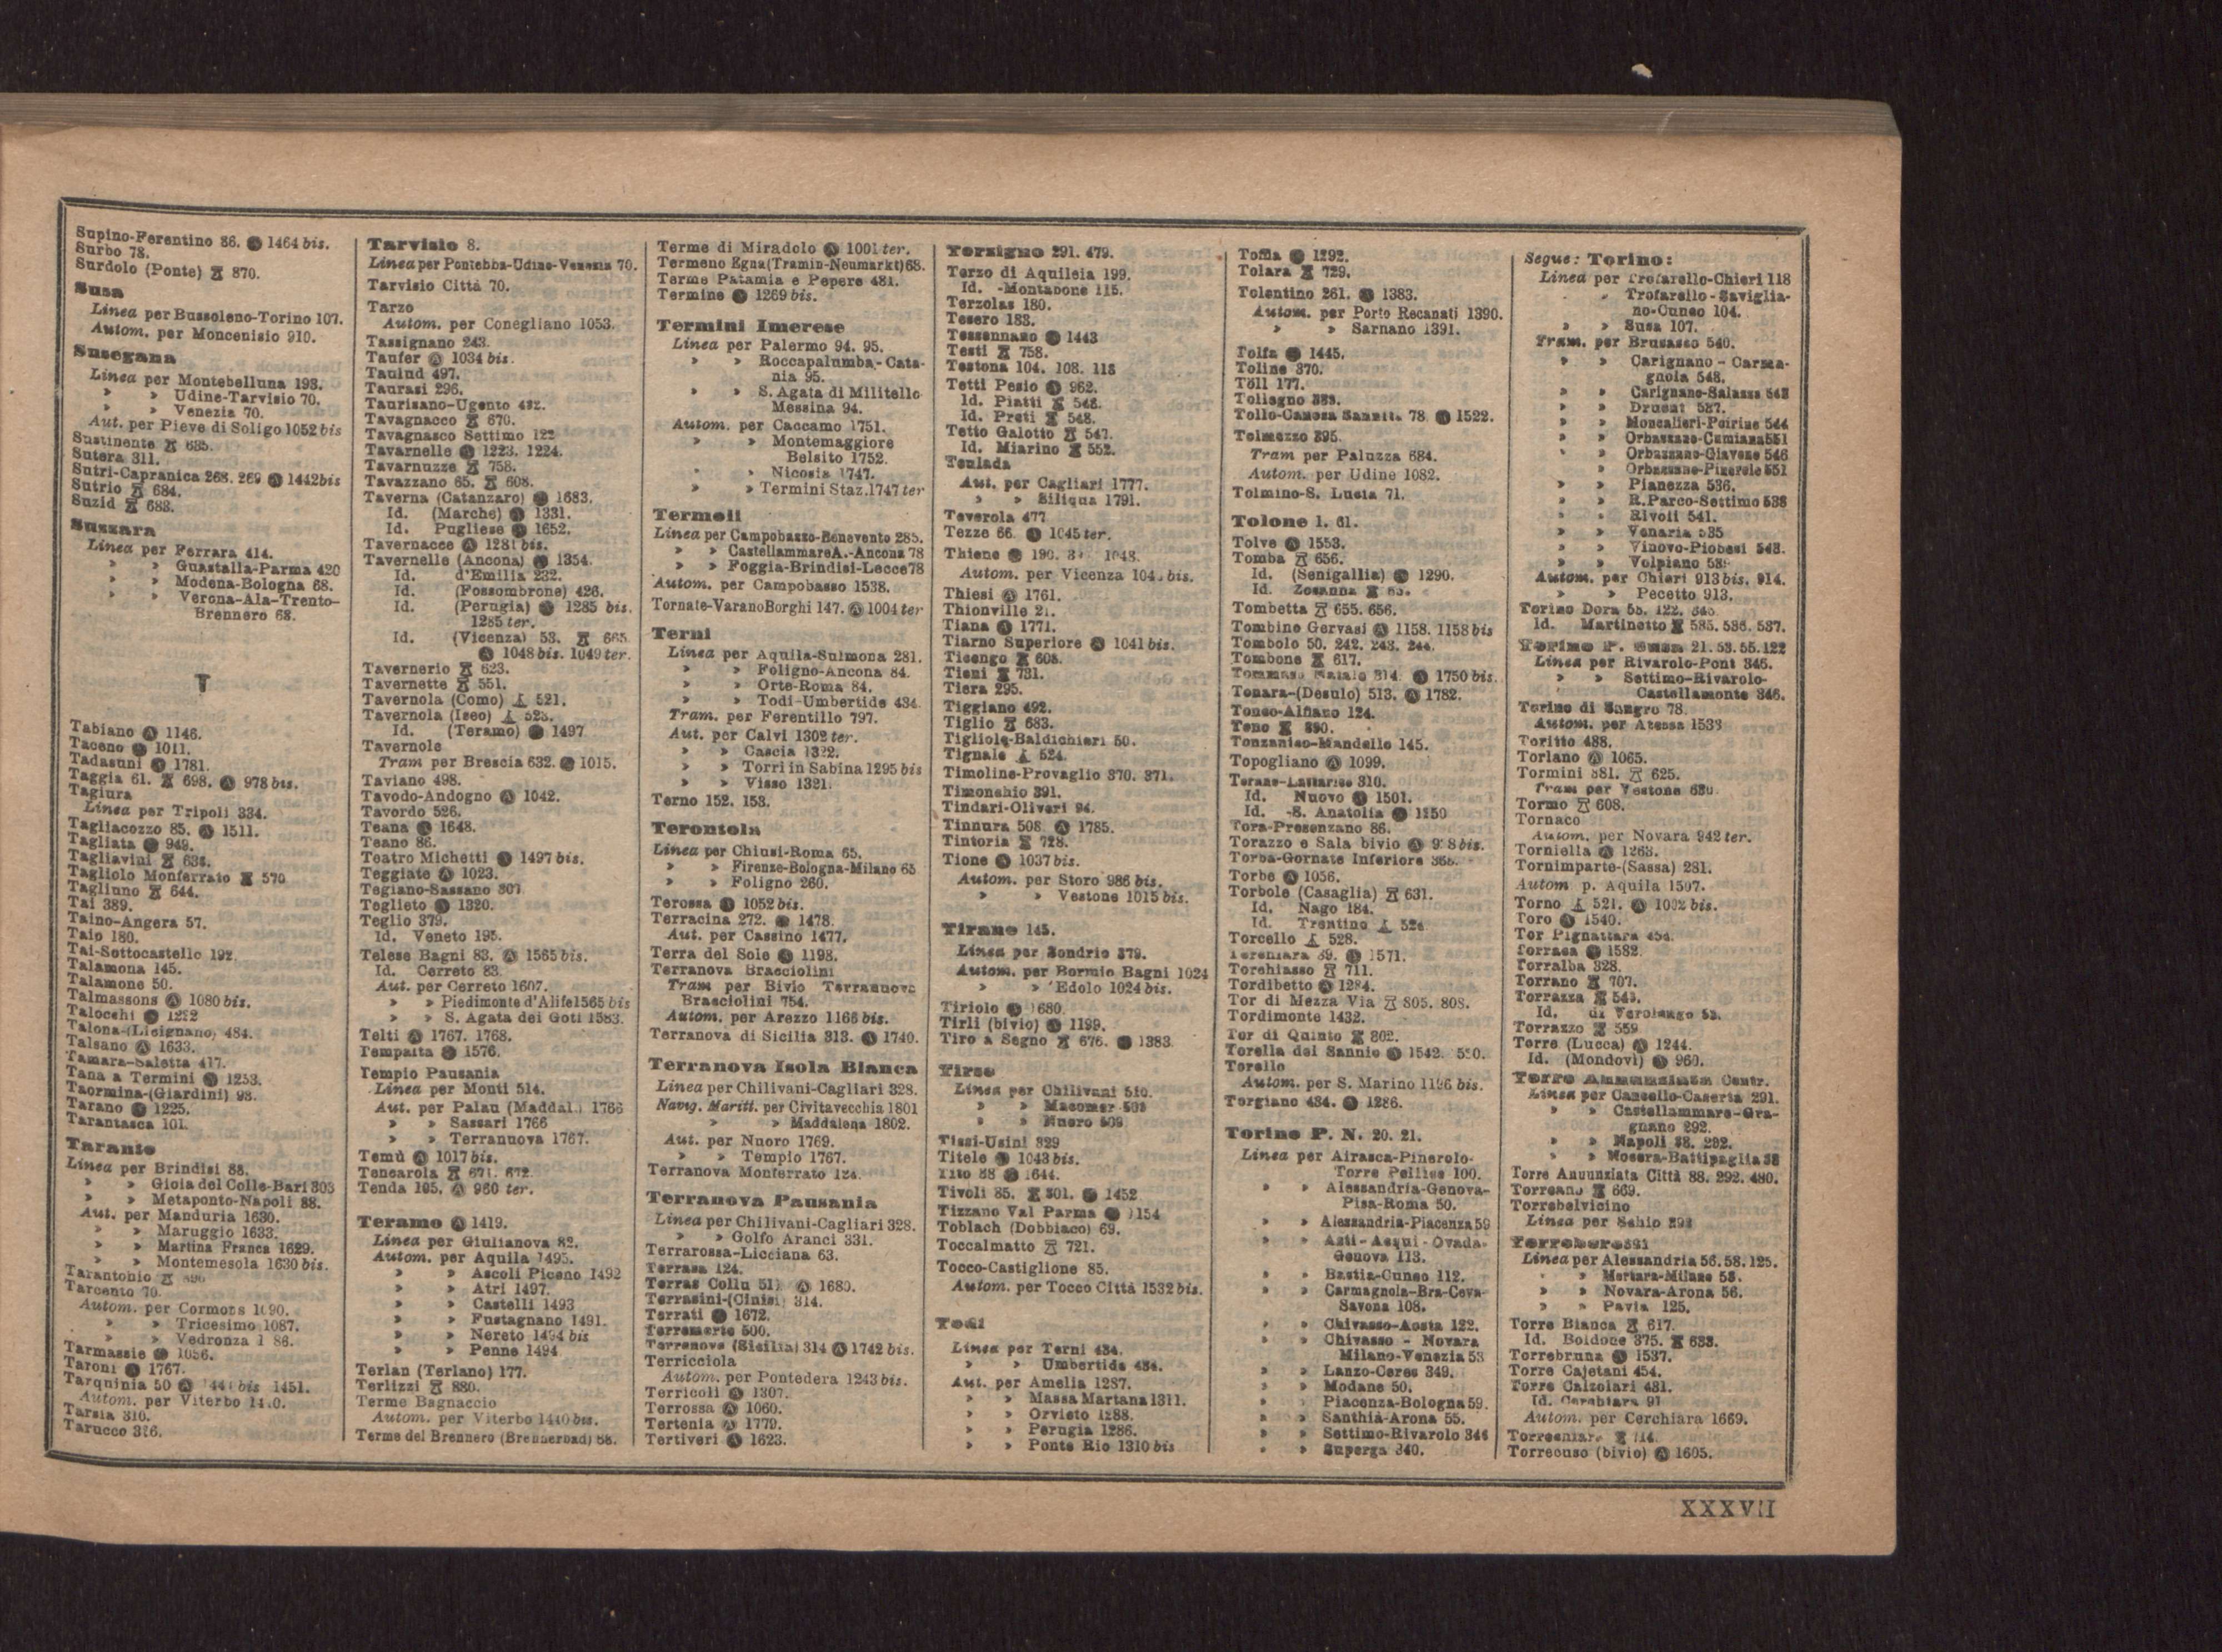 Supino-Ferentino 86. Ⓐ 1464 bis.
Surbo 78.
Surdolo (Ponte) 870.
Susa
Linea per Bussoleno-Torino 107.
Autom. per Moncenisio 910.
Susegana
Linea per Montebelluna 193.
» » Udine-Tarvisio 70.
» » Venezia 70.
Aut. per Pieve di Soligo 1052 bis
Sustinente 635.
Sutera 311.
Sutri-Capranica 268. 269 Ⓐ 1442 bis
Sutrio 684.
Suzid 683.
Suzzara
Linea per Ferrara 414.
» » Guastalla-Parma 420
» » Modena-Bologna 68.
» » Verona-Ala-Trento-
Brennero 68.
T
Tabiano Ⓐ 1146.
Taceno Ⓐ 1011.
Tadasuni Ⓐ 1781.
Taggia 61. 698. Ⓐ 978 bis.
Tagiura
Linea per Tripoli 334.
Tagliacozzo 85. Ⓐ 1511.
Tagliata Ⓐ 949.
Tagliavini 634.
Tagliolo Monferrato 570
Tagliuno 644.
Tai 389.
Taino-Angera 57.
Taio 180.
Tai-Sottocastello 192.
Talamona 145.
Talamone 50.
Talmassons Ⓐ 1080 bis.
Talocchi Ⓐ 1292
Talona-(Licignano) 484.
Talsano Ⓐ 1633.
Tamara-Saletta 417.
Tana a Termini Ⓐ 1253.
Taormina-(Giardini) 93.
Tarano Ⓐ 1225.
Tarantasca 101.
Taranto
Linea per Brindisi 88.
» » Gioia del Colle-Bari 303
» » Metaponto-Napoli 88.
Aut. per Manduria 1630.
» » Maruggio 1633.
» » Martina Franca 1629.
» » Montemesola 1630 bis.
Tarantonio
Tarcento 70.
Autom. per Cormons 1090.
» » Tricesimo 1087.
» » Vedronza
Tarmassie Ⓐ 1056.
Taroni Ⓐ 1767.
Tarquinia 50 Ⓐ bis 1451.
Autom. per Viterbo
Tarsia 310.
Tarucco
Tarvisio 8.
Linea per Pontebba-Udine-Venezia 70.
Tarvisio Città 70.
Tarzo
Autom. per Conegliano 1053.
Tassignano 243.
Taufer Ⓐ 1034 bis.
Tauind 497.
Taurasi 296.
Taurisano-Ugento 492.
Tavagnacco 670.
Tavagnasco Settimo 122
Tavarnelle Ⓐ 1223. 1224.
Tavarnuzze 758.
Tavazzano 65. 608.
Taverna (Catanzaro) Ⓐ 1683.
Id. (Marche) Ⓐ 1331.
Id. Pugliese Ⓐ 1652.
Tavernacce Ⓐ 1281 bis.
Tavernelle (Ancona) Ⓐ 1354.
Id. d'Emilia 232.
Id. (Fossombrone) 426.
Id. (Perugia) Ⓐ 1285 bis.
1285 ter.
Id. (Vicenza) 53. 665
Ⓐ 1048 bis. 1049 ter.
Tavernerio 623.
Tavernette 551.
Tavernola (Como) 521.
Tavernola (Iseo) 523.
Id. (Teramo) Ⓐ 1497
Tavernole
Tram per Brescia 632. Ⓐ 1015.
Taviano 498.
Tavodo-Andogno Ⓐ 1042.
Tavordo 526.
Teana Ⓐ 1648.
Teano 86.
Teatro Michetti Ⓐ 1497 bis.
Teggiate Ⓐ 1023.
Tegiano-Sassano 307
Teglieto Ⓐ 1320.
Teglio 379.
Id. Veneto 195.
Telese Bagni 83. Ⓐ 1565 bis.
Id. Cerreto 83.
Aut. per Cerreto 1607.
» » Piedimonte d'Alife 1565 bis
» » S. Agata dei Goti 1583.
Telti Ⓐ 1767. 1768.
Tempaita Ⓐ 1576.
Tempio Pausania
Linea per Monti 514.
Aut. per Palau (Maddal.) 1766
» » Sassari 1766
» » Terranuova 1767.
Temù Ⓐ 1017 bis.
Tencarola 671. 672.
Tenda 105. Ⓐ 980 ter.
Teramo Ⓐ 1419.
Linea per Giulianova 82.
Autom. per Aquila 1495.
» » Ascoli Piceno 1492
» » Atri 1497.
» » Castelli 1493
» » Fustagnano 1491.
» » Nereto 1494 bis
» » Penne 1494
Terlan (Terlano) 177.
Terlizzi 880.
Terme Bagnaccio
Autom. per Viterbo 1440 bis.
Terme del Brennero (Brennerbad) 68.
Terme di Miradolo Ⓐ 1001 ter.
Termeno Egna (Tramin-Neumarkt) 68.
Terme Patamia e Pepere 481.
Termine Ⓐ 1269 bis.
Termini Imerese
Linea per Palermo 94. 95.
» » Roccapalumba-Cata-
nia 95.
» » S. Agata di Militello
Messina 94.
Autom. per Caccamo 1751.
» » Montemaggiore
Belsito 1752.
» » Nicosia 1747.
» » Termini Staz. 1747 ter
Termoli
Linea per Campobasso-Benevento 285.
» » Castellammare A.-Ancona 78
» » Foggia-Brindisi-Lecce 78
Autom. per Campobasso 1538.
Ternate-Varano Borghi 147. Ⓐ 1004 ter
Terni
Linea per Aquila-Sulmona 281.
» » Foligno-Ancona 84.
» » Orte-Roma 84.
» » Todi-Umbertide 434
Tram. per Ferentillo 797.
Aut. per Calvi 1302 ter.
» » Cascia 1322.
» » Torri in Sabina 1295 bis
» » Visso 1321.
Terno 152. 153.
Terontola
Linea per Chiusi-Roma 65.
» » Firenze-Bologna-Milano 65
» » Foligno 260.
Terossa Ⓐ 1052 bis.
Terracina 272. Ⓐ 1478.
Aut. per Cassino 1477.
Terra del Sole Ⓐ 1198.
Terranova Bracciolini
Tram per Bivio Terranuova
Bracciolini 754.
Autom. per Arezzo 1166 bis.
Terranova di Sicilia 313. Ⓐ 1740.
Terranova Isola Bianca
Linea per Chilivani-Cagliari 328.
Navig. Maritt. per Civitavecchia 1801
» » Maddalena 1802.
Aut. per Nuoro 1769.
» » Tempio 1767.
Terranova Monferrato 124.
Terranova Pausania
Linea per Chilivani-Cagliari 328.
» » Golfo Aranci 331.
Terrarossa-Licciana 63.
Terrasa 124.
Terras Collu Ⓐ 1680.
Terrasini-(Cinisi) 314.
Terrati Ⓐ 1672.
Terremorte 500.
Terrenove (Sicilia) 314 Ⓐ 1742 bis.
Terricciola
Autom. per Pontedera 1243 bis.
Terricoli Ⓐ 1307.
Terrossa Ⓐ 1060.
Tertenia Ⓐ 1779.
Tertiveri Ⓐ 1623.
Terzigno 291. 479.
Terzo di Aquileia 199.
Id. -Montabone 115.
Terzolas 180.
Tesero 183.
Tessennano Ⓐ 1443
Testi 758.
Testona 104. 108. 118
Tetti Pesio Ⓐ 962.
Id. Piatti 548.
Id. Preti 548.
Tetto Galotto 547.
Id. Miarino 552.
Teulada
Aut. per Cagliari 1777.
» » Siliqua 1791.
Teverola 477
Tezze 66. Ⓐ 1045 ter.
Thiene Ⓐ 190. 1048.
Autom. per Vicenza bis.
Thiesi Ⓐ 1761.
Thionville 21.
Tiana Ⓐ 1771.
Tiarno Superiore Ⓐ 1041 bis.
Ticengo 608.
Tieni 731.
Tiera 295.
Tiggiano 492.
Tiglio 683.
Tigliole-Baldichieri 50.
Tignale 524.
Timoline-Provaglio 370. 371.
Timonchio 391.
Tindari-Oliveri 94.
Tinnura 508. Ⓐ 1785.
Tintoria 728.
Tione Ⓐ 1037 bis.
Autom. per Storo 986 bis.
» » Vestone 1015 bis.
Tirano 145.
Linea per Sondrio 379.
Autom. per Bormio Bagni 1024
» » Edolo 1024 bis.
Tiriolo Ⓐ 1680.
Tirli (bivio) Ⓐ 1199.
Tiro a Segno 676. Ⓐ 1383.
Tirso
Linea per Chilivani 510.
» » Macomer 509
» » Nuoro 509
Tissi-Usini 329
Titele Ⓐ 1043 bis.
Tito 88 Ⓐ 1644.
Tivoli 85. 801. Ⓐ 1452
Tizzano Val Parma Ⓐ 1154
Toblach (Dobbiaco) 69.
Toccalmatto 721.
Tocco-Castiglione 85.
Autom. per Tocco Città 1532 bis.
Todi
Linea per Terni 434.
» » Umbertide 434.
Aut. per Amelia 1287.
» » Massa Martana 1311.
» » Orvieto 1288.
» » Perugia 1286.
» » Ponte Rio 1310 bis
Toffia Ⓐ 1292.
Tolara 729.
Tolentino 261. Ⓐ 1383.
Autom. per Porto Recanati 1390.
» » Sarnano 1391.
Tolfa Ⓐ 1445.
Toline 370.
Töll 177.
Tollegno 383.
Tollo-Canosa Sannita 78. Ⓐ 1522.
Tolmezzo 395.
Tram per Paluzza 684.
Autom. per Udine 1082.
Tolmino-S. Lucia 71.
Tolone 1. 61.
Tolve Ⓐ 1553.
Tomba 656.
Id. (Senigallia) Ⓐ 1290.
Id. Zosanna
Tombetta 655. 656.
Tombine Gervasi Ⓐ 1158. 1158 bis
Tombolo 50. 242. 243. 244.
Tombone 617.
Tommaso Natale 314. Ⓐ 1750 bis.
Tonara-(Desulo) 513. Ⓐ 1782.
Tonco-Alfiano 124.
Tono 890.
Tonzanico-Mandello 145.
Topogliano Ⓐ 1099.
Torano-Lattarico 310.
Id. Nuovo Ⓐ 1501.
Id. -S. Anatolia Ⓐ 1250
Tora-Presenzano 86.
Torazzo e Sala bivio Ⓐ bis.
Torba-Gornate Inferiore 365.
Torbe Ⓐ 1056.
Torbole (Casaglia) 631.
Id. Nago 184.
Id. Trentino 524
Torcello 528.
Torchiara 89. Ⓐ 1571.
Torchiasso 711.
Tordibetto Ⓐ 1284.
Tor di Mezza Via 805. 808.
Tordimonte 1432.
Tor di Quinto 802.
Torella dei Sannio Ⓐ 1542.
Torello
Autom. per S. Marino 1126 bis.
Torgiano 434. Ⓐ 1286.
Torino P. N. 20. 21.
Linea per Airasca-Pinerolo-
Torre Pellice 100.
» » Alessandria-Genova-
Pisa-Roma 50.
» » Alessandria-Piacenza 59
» » Asti-Acqui-Ovada-
Genova 113.
» » Bastia-Cuneo 112.
» » Carmagnola-Bra-Ceva-
Savona 108.
» » Chivasso-Aosta 122.
» » Chivasso - Novara
Milano-Venezia 53
» » Lanzo-Ceres 349.
» » Modane 50.
» » Piacenza-Bologna 59.
» » Santhià-Arona 55.
» » Settimo-Rivarolo 346
» » Superga 340.
Segue: Torino:
Linea per Trofarello-Chieri 118
» Trofarello-Saviglia-
no-Cuneo 104.
» » Susa 107.
Tram. per Brusasco 540.
» » Carignano - Carma-
gnola 548.
» » Carignano-Saluzzo 548
» » Druent 537.
» » Moncalieri-Poirino 544
» » Orbassano-Cumiana 551
» » Orbassano-Giaveno 546
» Orbassano-Pinerolo 551
» » Pianezza 536.
» » R. Parco-Settimo 538
» » Rivoli 541.
» » Venaria 535
» » Vinovo-Piobesi 543.
» » Volpiano
Autom. per Chieri 913 bis. 914.
» » Pecetto 913.
Torino Dora 55. 122. 345.
Id. Martinetto 585. 586. 587.
Torino P. Susa 21. 53. 55. 122
Linea per Rivarolo-Pont 346.
» » Settimo-Rivarolo-
Castellamonte 346.
Torino di Sangro 78.
Autom. per Atessa 1533
Toritto 488.
Torlano Ⓐ 1065.
Tormini 381. 625.
Tram per Vestone 630.
Tormo 608.
Tornaco
Autom. per Novara 942 ter.
Torniella Ⓐ 1263.
Tornimparte-(Sassa) 281.
Autom p. Aquila 1507.
Torno 521. Ⓐ 1002 bis.
Toro Ⓐ 1540.
Tor Pignattara 454.
Torraca Ⓐ 1582.
Torralba 328.
Torrano 707.
Torrazza 543.
Id. di Verolengo 53.
Torrazzo 559
Torre (Lucca) Ⓐ 1244.
Id. (Mondovì) Ⓐ 960.
Torre Annunziata Centr.
Linea per Cancello-Caserta 291.
» » Castellammare-Gra-
gnano 292.
» » Napoli 88. 292.
» » Nocera-Battipaglia 88
Torre Annunziata Città 88. 292. 480.
Torreano 669.
Torrebelvicino
Linea per Schio 393
Torreberetti
Linea per Alessandria 56. 58. 125.
» » Mortara-Milano 58.
» » Novara-Arona 56.
» » Pavia 125.
Torre Bianca 617.
Id. Boidone 375. 633.
Torrebruna Ⓐ 1537.
Torre Cajetani 454.
Torre Calzolari 431.
Id. Cerchiara 91
Autom. per Cerchiara 1669.
Torrechiara 714.
Torrecuso (bivio) Ⓐ 1605.
XXXVII